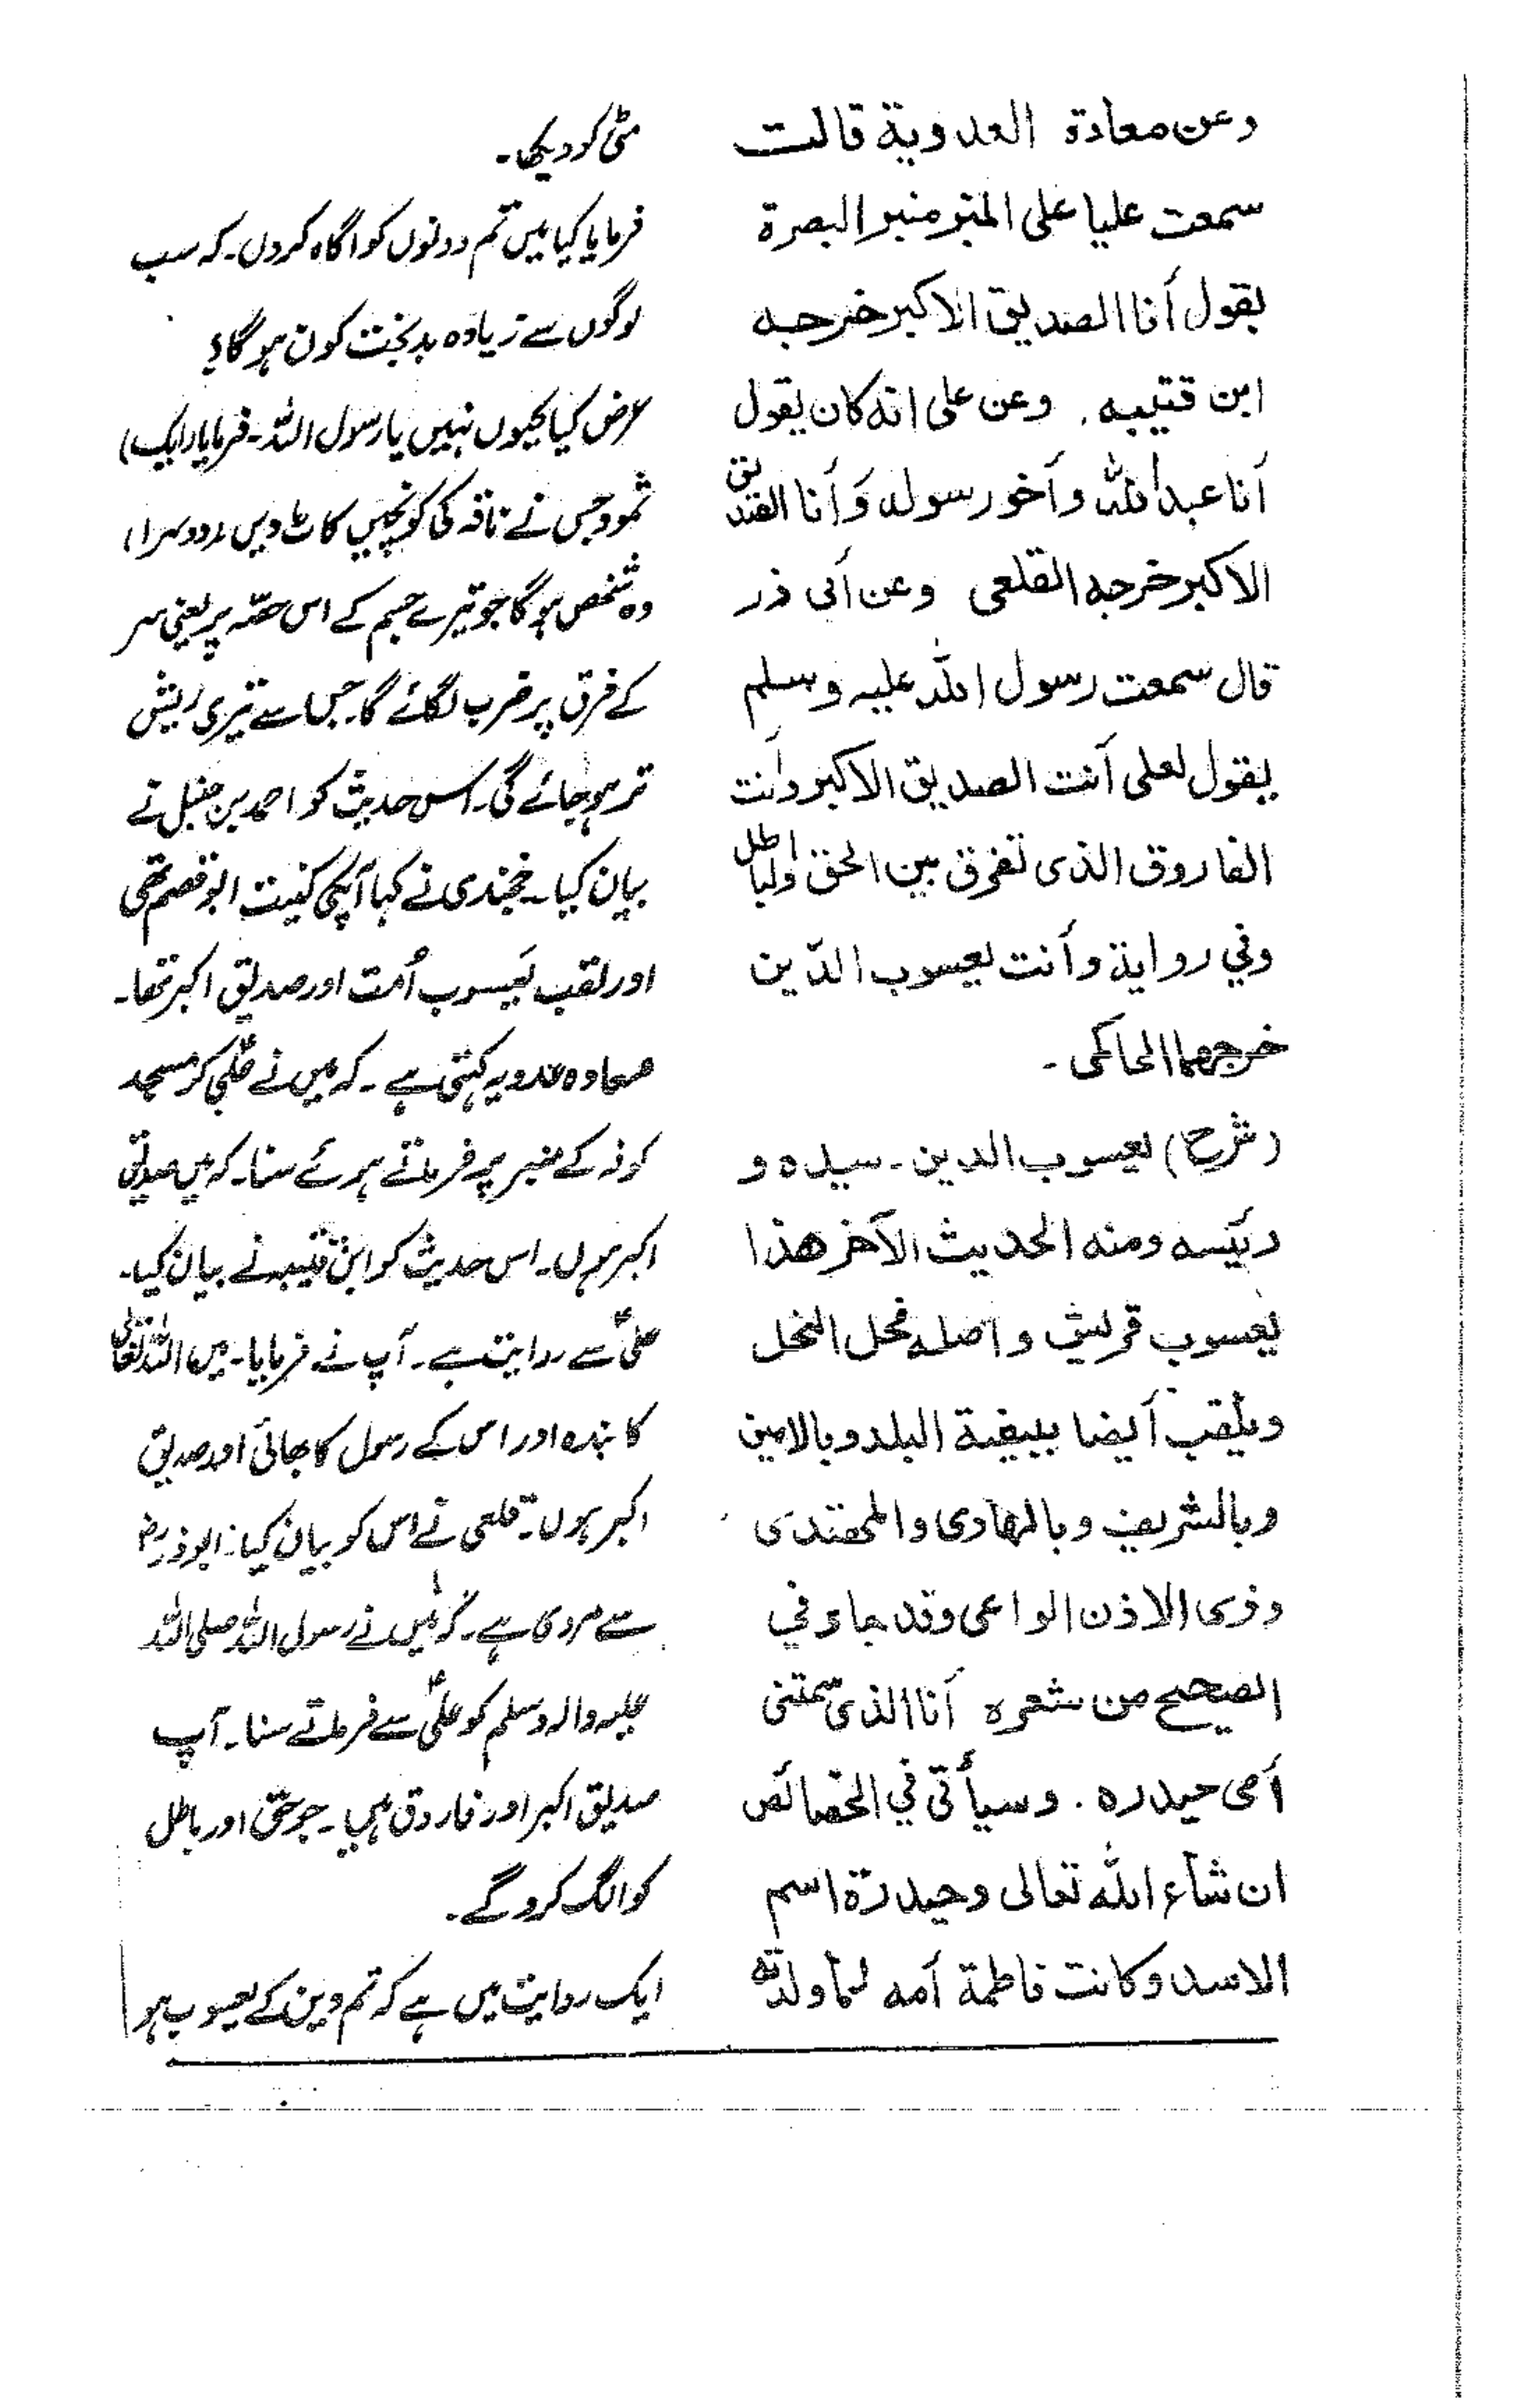 وعن معادة العدوية قالت
سمعت عليا على المنبر منبر البصرة
يقول أنا الصديق الاكبر خرجه
ابن قتيبه. وعن على انه كان يقول
أنا عبد الله وأخو رسوله وَأنا الصديق
الاكبر خرجه القلعى وعن أبى ذر
قال سمعت رسول الله عليه وسلم
يقول لعلى أنت الصديق الاكبر وأنت
الفاروق الذى تفرق بين الحق والباطل
وفي رواية وأنت يعسوب الدّين
خرجهما الحاكمى -
(شرح) يعسوب الدين - سيده و
رئيسه ومنه الحديث الآخر هذا
يعسوب قريش واصله فحل النحل
ويلقب أيضا ببيضة البلد وبالامين
وبالشريف وبالهادى والمهتدى
وذى الاذن الواعى وقد جاء في
الصحيح من شعره أنا الذى سمتنى
أمى حيدره . وسيأتى في الخصائص
ان شآء الله تعالى وحيدرة اسم
الاسد وكانت فاطمة أمه لما ولدته
مٹی کو دیکھا۔
فرمایا کیا میں تم دونوں کو آگاہ کر دوں۔ کہ سب
لوگوں سے زیادہ بدبخت کون ہوگا؟
عرض کیا کیوں نہیں یا رسول اللہ۔ فرمایا (ایک)
ثمود جس نے ناقہ کی کونچیں کاٹ دیں (دوسرا)
وہ شخص ہوگا جو تیرے جسم کے اس حصّہ پر یعنی سر
کے فرق پر ضرب لگائے گا۔ جس سے تیری ریش
تر ہو جائے گی۔ اس حدیث کو احمد بن حنبل نے
بیان کیا۔ خجندی نے کہا آپکی کنیت ابو قصم تھی
اور لقب یَعسوب اُمت اور صدیق اکبر تھا۔
معادہ عدویہ کہتی ہے۔ کہ میں نے علیؑ کو مسجد
کوفہ کے منبر پر فرماتے ہوئے سنا۔ کہ میں صدیق
اکبر ہوں۔ اس حدیث کو ابن قتیبہ نے بیان کیا۔
علیؑ سے روایت ہے۔ آپ نے فرمایا۔ میں اللہ تعالٰی
کا بندہ اور اس کے رسول کا بھائی اور صدیق
اکبر ہوں۔ قلعی نے اس کو بیان کیا۔ ابوذر رض
سے مروی ہے۔ کہ میں نے رسول اللہ صلی اللہ
علیہ والہ وسلم کو علیؑ سے فرماتے سنا۔ آپ
صدیق اکبر اور فاروق ہیں۔ جو حق اور باطل
کو الگ کرو گے۔
ایک روایت میں ہے کہ تم دین کے یعسوب ہو